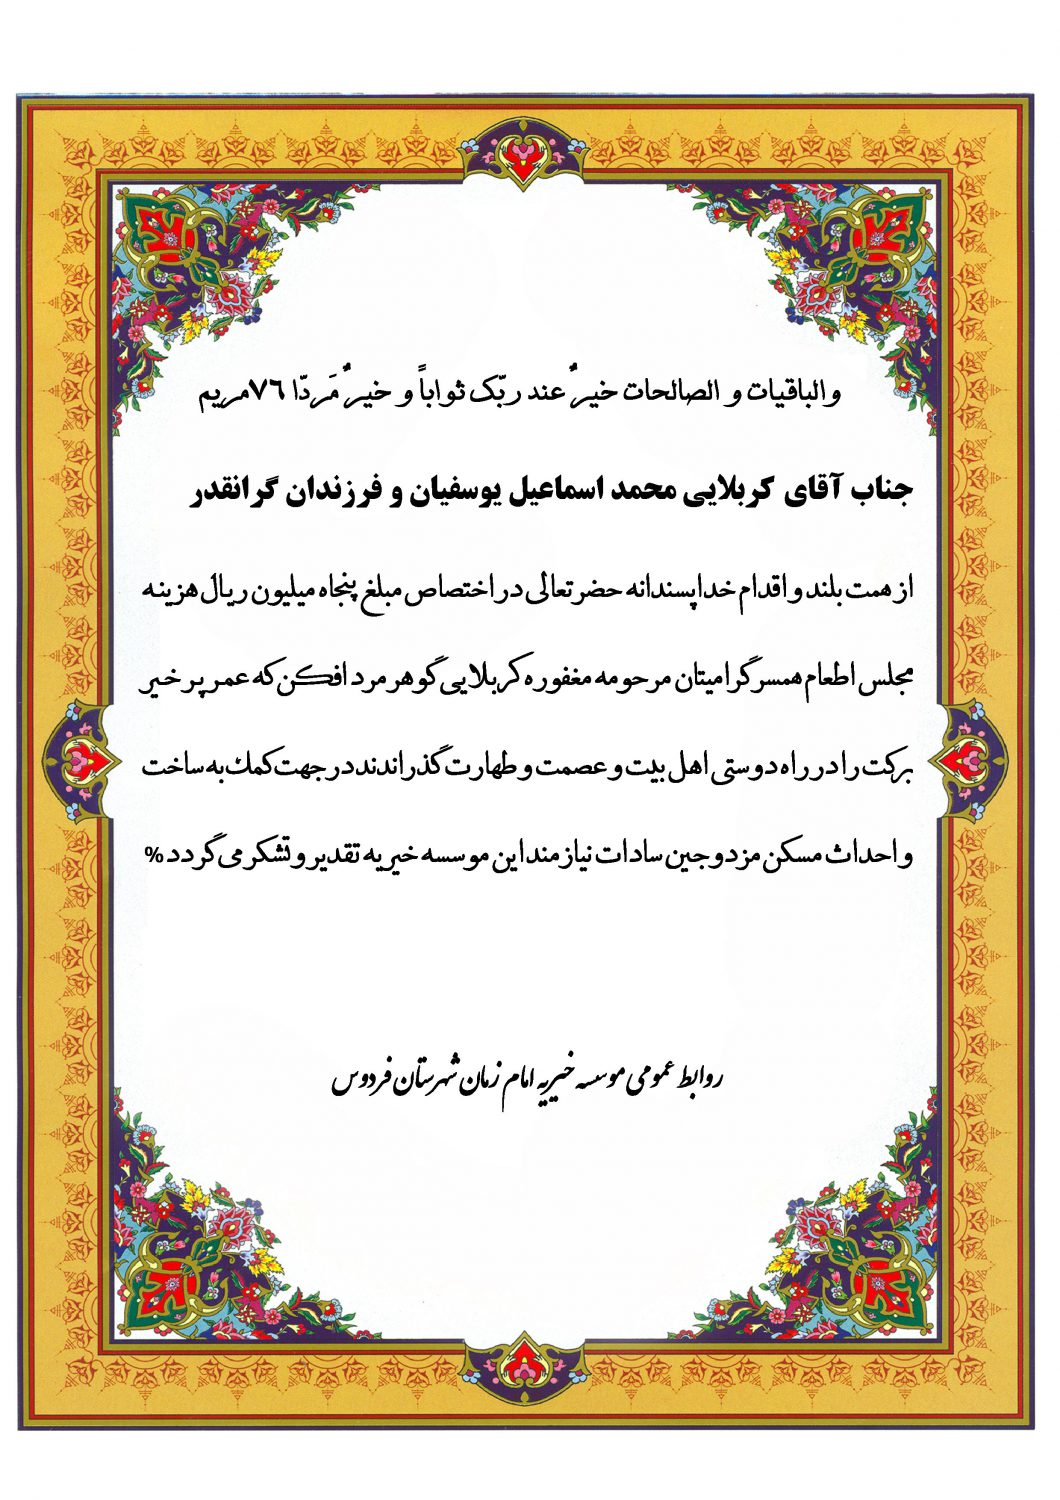 والباقیات و الصالحات خیرٌ عند ربّک ثواباً و خیرٌ مَردّا ۷۶مریم
جناب آقای کربلایی محمد اسماعیل یوسفیان و فرزندان گرانقدر
از همت بلند و اقدام خداپسندانه حضرتعالی در اختصاص مبلغ پنجاه میلیون ریال هزینه
مجلس اطعام همسر گرامیتان مرحومه مغفوره کربلایی گوهر مرد افکن که عمر پر خیر
برکت را در راه دوستی اهل بیت و عصمت و طهارت گذراندند در جهت کمک به ساخت
و احداث مسکن مزدوجین سادات نیازمند این موسسه خیریه تقدیر و تشکر می گردد %
روابط عمومی موسسه خیریه امام زمان شهرستان فردوس